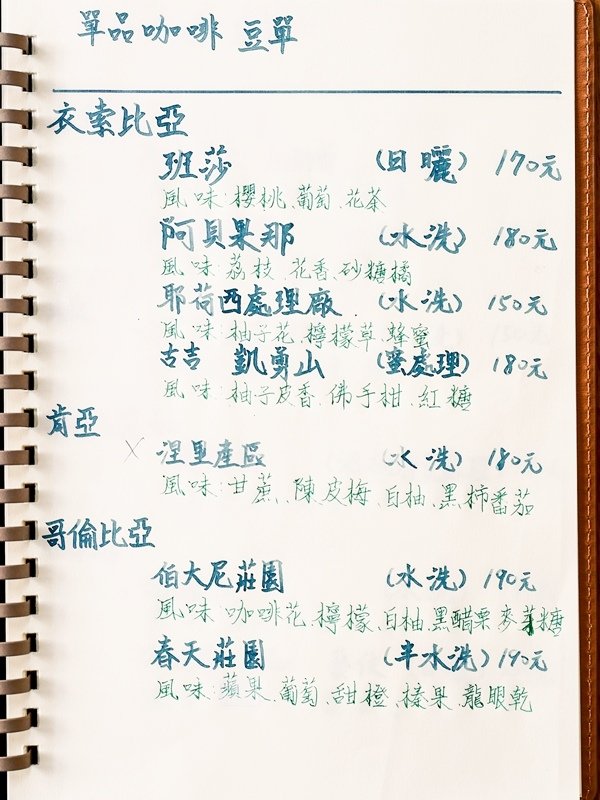 單品咖啡 豆單
衣索比亞
班莎 (日曬) 170元
風味:櫻桃、葡萄、花茶
阿貝果那 (水洗) 180元
風味:荔枝、花香、砂糖橘
耶荷西處理廠 (水洗) 150元
風味:柚子花、檸檬草、蜂蜜
古吉 凱勇山 (蜜處理) 180元
風味:柚子皮香、佛手柑、紅糖
肯亞
X 涅里產區 (水洗) 180元
風味:甘蔗、陳皮梅、白柚、黑柿番茄
哥倫比亞
伯大尼莊園 (水洗) 190元
風味:咖啡花、檸檬、白柚、黑醋栗、麥芽糖
春天莊園 (半水洗) 190元
風味:蘋果、葡萄、甜橙、榛果、龍眼乾